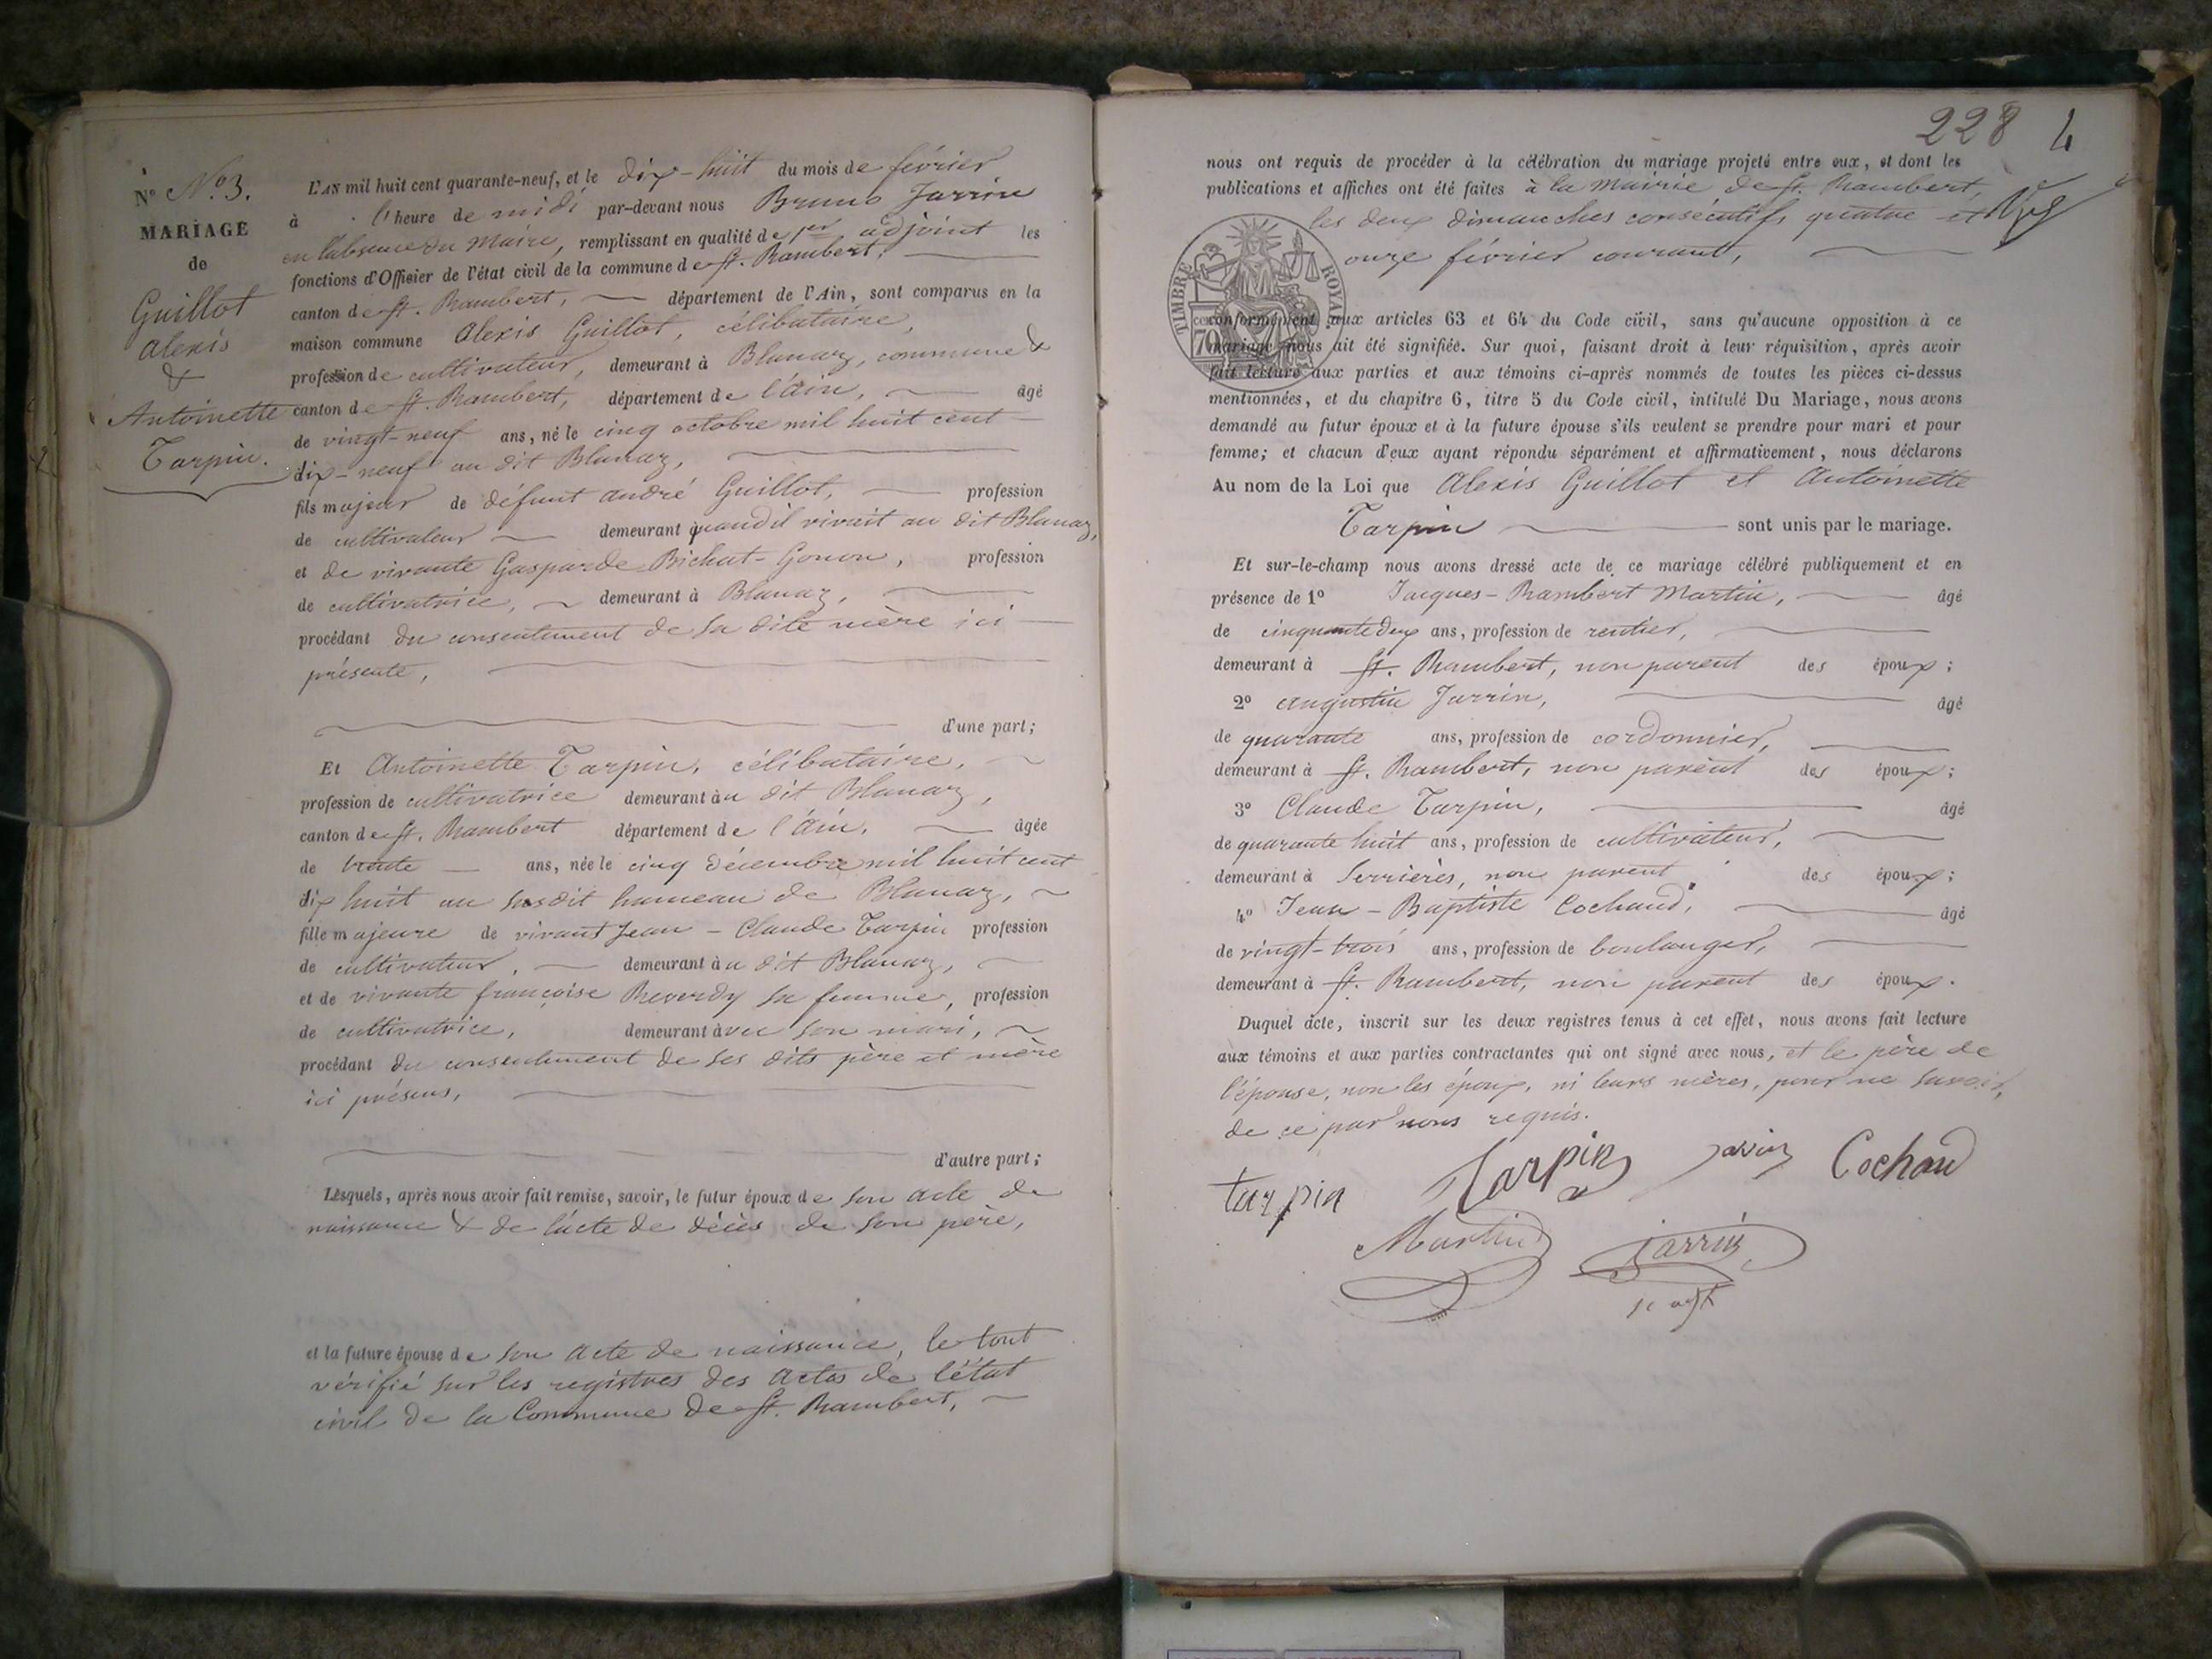 N° N°. 3.
MARIAGE
de
Guillot
Alexis
&
Antoinette
Tarpin.
L'AN mil huit cent quarante-neuf, et le dix-huit du mois de février
à l'heure de midi par-devant nous Bruno Jarrin
en l'absence du Maire, remplissant en qualité de 1er adjoint les
fonctions d'Officier de l'état civil de la commune de St. Rambert,
canton de St. Rambert, département de l'Ain, sont comparus en la
maison commune Alexis Guillot, célibataire,
profession de cultivateur, demeurant à Blanaz, commune &
canton de St. Rambert, département de l'Ain, âgé
de vingt-neuf ans, né le cinq octobre mil huit cent
dix-neuf au dit Blanaz,
fils majeur de défunt André Guillot, profession
de cultivateur demeurant quand il vivait au dit Blanaz,
et de vivante Gasparde Bichat-Gonon, profession
de cultivatrice, demeurant à Blanaz,
procédant du consentement de sa dite mère ici
présente,
d'une part;
Et Antoinette Tarpin, célibataire,
profession de cultivatrice demeurant au dit Blanaz,
canton de St. Rambert département de l'Ain, âgée
de trente ans, née le cinq décembre mil huit cent
dix huit au susdit hameau de Blanaz,
fille majeure de vivant Jean-Claude Tarpin profession
de cultivateur, demeurant au dit Blanaz,
et de vivante françoise Reverdy sa femme, profession
de cultivatrice, demeurant avec son mari,
procédant du consentement de ses dits père et mère
ici présens,
d'autre part;
Lesquels, après nous avoir fait remise, savoir, le futur époux de son acte de
naissance & de l'acte de décès de son père,
et la future épouse de son acte de naissance, le tout
vérifié sur les registres des actes de l'état
civil de la Commune de St. Rambert,
228 4
nous ont requis de procéder à la célébration du mariage projeté entre eux, et dont les
publications et affiches ont été faites à la Mairie de St. Rambert,
les deux dimanches consécutifs quatre et
onze février courant,
TIMBRE ROYAL
70
conformément aux articles 63 et 64 du Code civil, sans qu'aucune opposition à ce
mariage nous ait été signifiée. Sur quoi, faisant droit à leur réquisition, après avoir
fait lecture aux parties et aux témoins ci-après nommés de toutes les pièces ci-dessus
mentionnées, et du chapitre 6, titre 5 du Code civil, intitulé Du Mariage, nous avons
demandé au futur époux et à la future épouse s'ils veulent se prendre pour mari et pour
femme; et chacun d'eux ayant répondu séparément et affirmativement, nous déclarons
Au nom de la Loi que Alexis Guillot et Antoinette
Tarpin sont unis par le mariage.
Et sur-le-champ nous avons dressé acte de ce mariage célébré publiquement et en
présence de 1° Jacques-Rambert Martin, âgé
de cinquante deux ans, profession de rentier,
demeurant à St. Rambert, non parent des époux;
2° Augustin Jarrin, âgé
de quarante ans, profession de cordonnier,
demeurant à St. Rambert, non parent des époux;
3° Claude Tarpin, âgé
de quarante huit ans, profession de cultivateur,
demeurant à Serrières, non parent des époux;
4° Jean-Baptiste Cochaud, âgé
de vingt-trois ans, profession de boulanger,
demeurant à St. Rambert, non parent des époux.
Duquel acte, inscrit sur les deux registres tenus à cet effet, nous avons fait lecture
aux témoins et aux parties contractantes qui ont signé avec nous, et le père de
l'épouse, non les époux, ni leurs mères, pour ne savoir,
de ce par nous requis.
tarpin Tarpin Jarrin Cochaud
Martin Jarrin